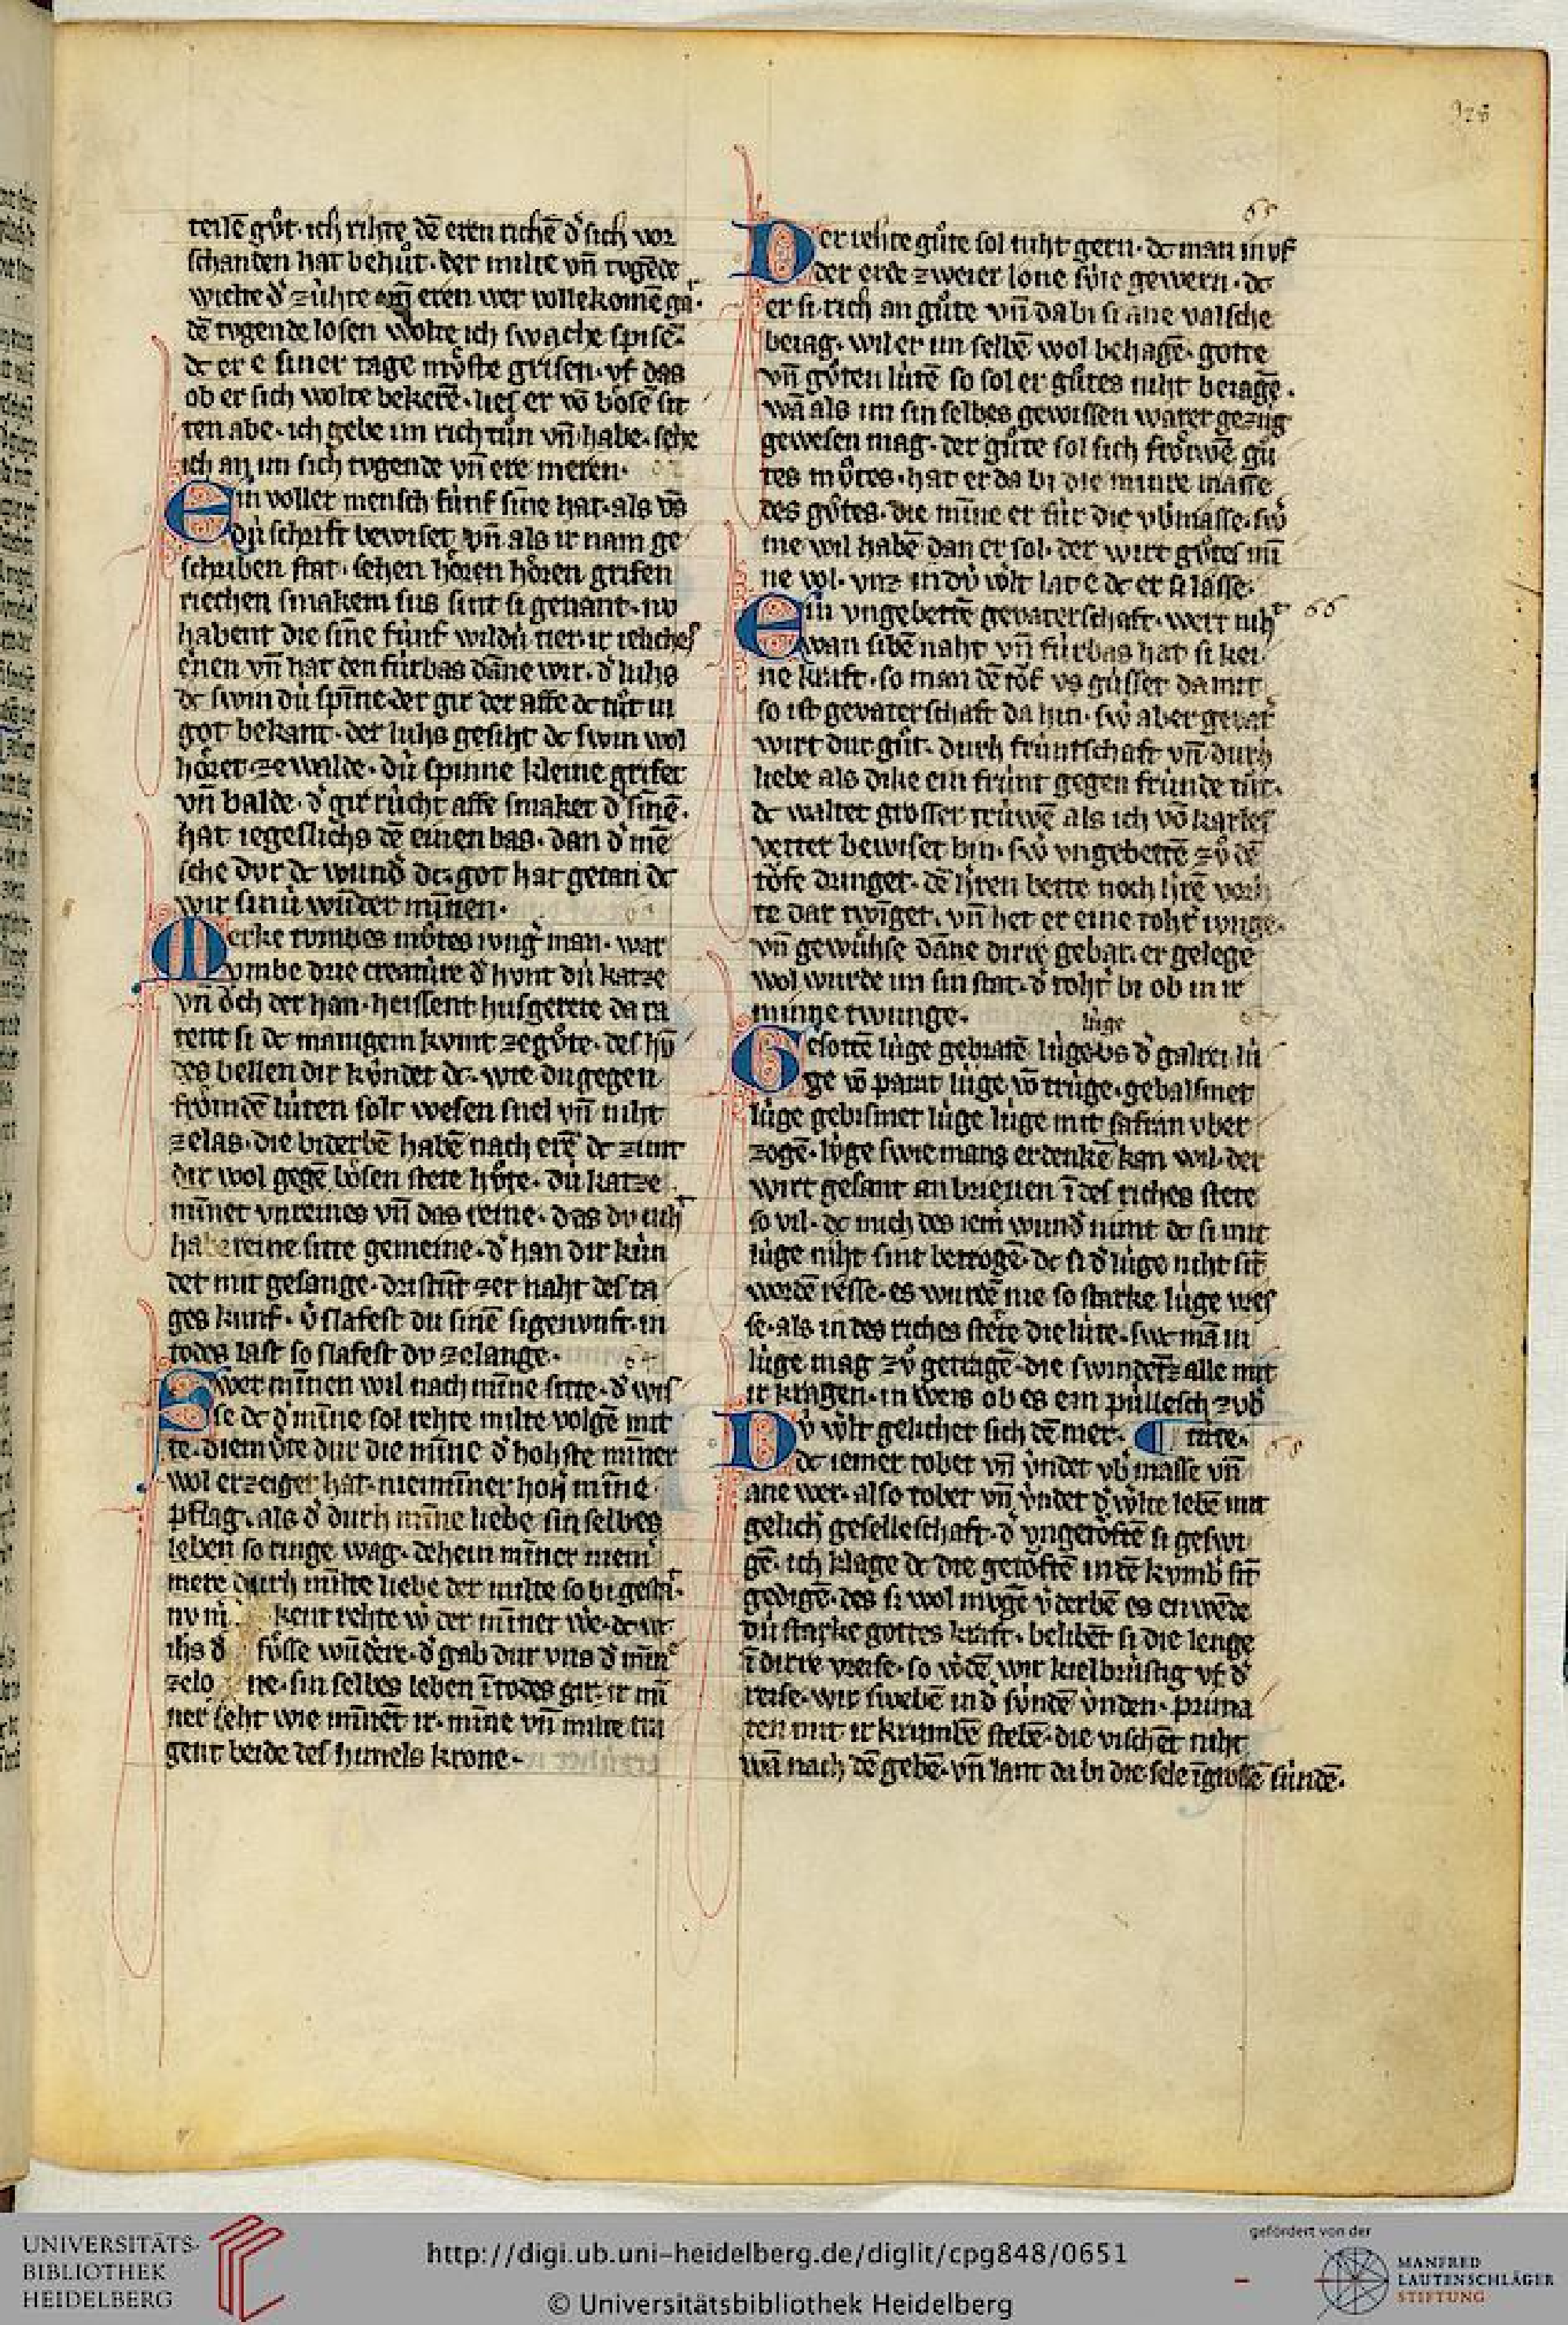 328
teilē gůt· ich rihte dē eren richē d̛ sich vor
schanden hat behůt· der milte vn̄ tvgēde
wielte d̛ zúhte vn̄ eren wer vollekomē gar·
dē tvgende losen wolte ich swache spisē·
dc er e siner tage mv̊ste grisen· vf das
ob er sich wolte bekerē· lies er vō bôsē sit
ten abe· ich gebe im richtůn vn̄ habe· sehe
ich an im sich tvgende vn̄ ere meren·
Ein voller mensch fúnf sīne hat· als vn̄s
dú schrift bewiset vn̄ als ir nam ge
schriben stat· sehen hôren hôren grifen
riechen smakem sus sint si genant· nv
habent die sīne fúnf wildú tier· ir ieliches
ēnen vn̄ hat den fúrbas dāne wir· d̛ luhs
dc swin dú spīne der gir der affe dc tůt in
got bekant· der luhs gesiht dc swin wol
hôret ze walde· dú spinne kleine grifet
vn̄ balde· d̛ gir rúcht affe smaket d̛ sīnē·
hat iegeslichs dē einen bas· dan d̛ mē
sche dvr dc wund̛ dc· got hat getan dc
wir sinú wūder mīnen·
Merke tvmbes mv̊tes ivng̛ man· war
vmbe drie creatúre d̛ hvnt dú katze
vn̄ ôch der han· heissent husgerete da ra
tent si dc manigem kvmt ze gůte· des hv̄
des bellen dir kúndet dc· wie du gegen
frômdē lúten solt wesen snel vn̄ niht
ze las· die biderbē habē nach erē dc zimt
dir wol gegē bôsen stete hůte· dú katze
mīnet vnreines vn̄ das reine· das dv niht
habe reine sitte gemeine· d̛ han dir kún
det mit gesange· dristūt zer naht des ta
ges kunf· v̛slafest du sinē sigenvnft· in
todes last so slafest dv ze lange·
64
Swer mīnen wil nach mīne sitte· d̛ wis
se dc d̛ mīne sol rehte milte volgē mit
te· diemv̊te dur die mīne d̛ hohste mīner
wol erzeiget hat· nie mīner hoh̛ mīne
pflag· als d̛ durh mīne liebe sin selbes
leben so ringe wag· dehein mīner niem̛
mere durh milte liebe der milte so bi gestat·
nv m kent rehte w̛ der mīner we· dc w
ihs d̛ sůsse wūdere· d̛ gab dur vns d̛ mīn
zelo ne· sin selbes leben ī todes git· ir mī
ner seht wie mīnēt ir· mīne vn̄ milte tra
gent beide des himels krone·
65
Der rehte gůte sol niht gern· dc man in vf
der erde zweier lône sv́le gewern· dc
er si rich an gůte vn̄ da bi si âne valsche
betag· wil er im selbē wol behagē· gotte
vn̄ gůten lútē so sol er gůtes niht betagē·
wā als im sin selbes gewissen warer gezúg
gewesen mag· der gůte sol sich frôwē gů
tes mv̊tes· hat er da bi die minre masse
des gůtes· die mīne er fúr die vb̛masse· sw̛
me wil habē dan er sol· der wirt gůtes mī
ne vol· vnz in dú w̛lt lat e dc er si lasse·
66
Ein vngebettē gevaterschaft· wert niht
wan sibē naht vn̄ fúrbas hat si kei
ne kraft· so man dē tôf vs gússet da mit
so ist gevaterschaft da hin· sw̛ aber gevat̛
wirt dur gůt· durh frúntschaft vn̄ durh
liebe als dike ein frúnt gegen frúnde tůt·
dc waltet grosser trúwē als ich vō karles
vetter bewiset bin· sw̛ vngebettē zů dē
tôfe dringet· dē h̛ren bette noch h̛rē vorh
te dar twīget· vn̄ het er eine toht̛ ivnge·
vn̄ gewúhse dāne dirre gebat· er gelege
wol wurde im sin stat· d̛ toht̛ bi ob in ir
minne twunge·
lúge
Gesottē lúge gebratē lúge vs d̛ galrei lú
ge vō parat lúge vō trúge· gebalsmet
lúge gebismet lúge lúge mit safran vber
zogē· lúge swie mans erdenkē kan vil· der
wirt gesant an brieuen ī des riches stete
so vil· dc mich des iem̛ wund̛ nimt dc si mit
lúge niht sint betrogē· dc si d̛ lúge niht sīt
wordē resse· es wurdē nie so starke lúge wes
se· als in des riches stete die lúte· swc mā in
lúge mag zů getragē· die swindētz alle mit
ir kragen· in weis ob es em púllesch zvb̛
Dú w̛lt gelichet sich dē mer· ¶ túte·
68
dc iemer tobet vn̄ v́ndet vb̛ masse vn̄
ane wer· also tobet vn̄ v́ndet d̛ w̛lte lebē mit
gelich̛ geselleschaft· d̛ vngetôftē si geswi
gē· ich klage dc die getôftē in dē kvmb̛ sīt
gedigē· des si wol mvgē v̛derbē es enwēde
dú starke gottes kraft· belibēt si die lenge
ī dirre vreise· so w̛dē wir kielbrústig vf d̛
reise· wir swebē in d̛ súndē v́nden· prima
ten mit ir krumbē stebē· die vischēt niht
wā nach dē gebē· vn̄ lant da bi die sele ī grossē súndē·
UNIVERSITÄTS-
BIBLIOTHEK
HEIDELBERG
http://digi.ub.uni-heidelberg.de/diglit/cpg848/0651
© Universitätsbibliothek Heidelberg
gefördert von der
MANFRED
LAUTENSCHLÄGER
STIFTUNG